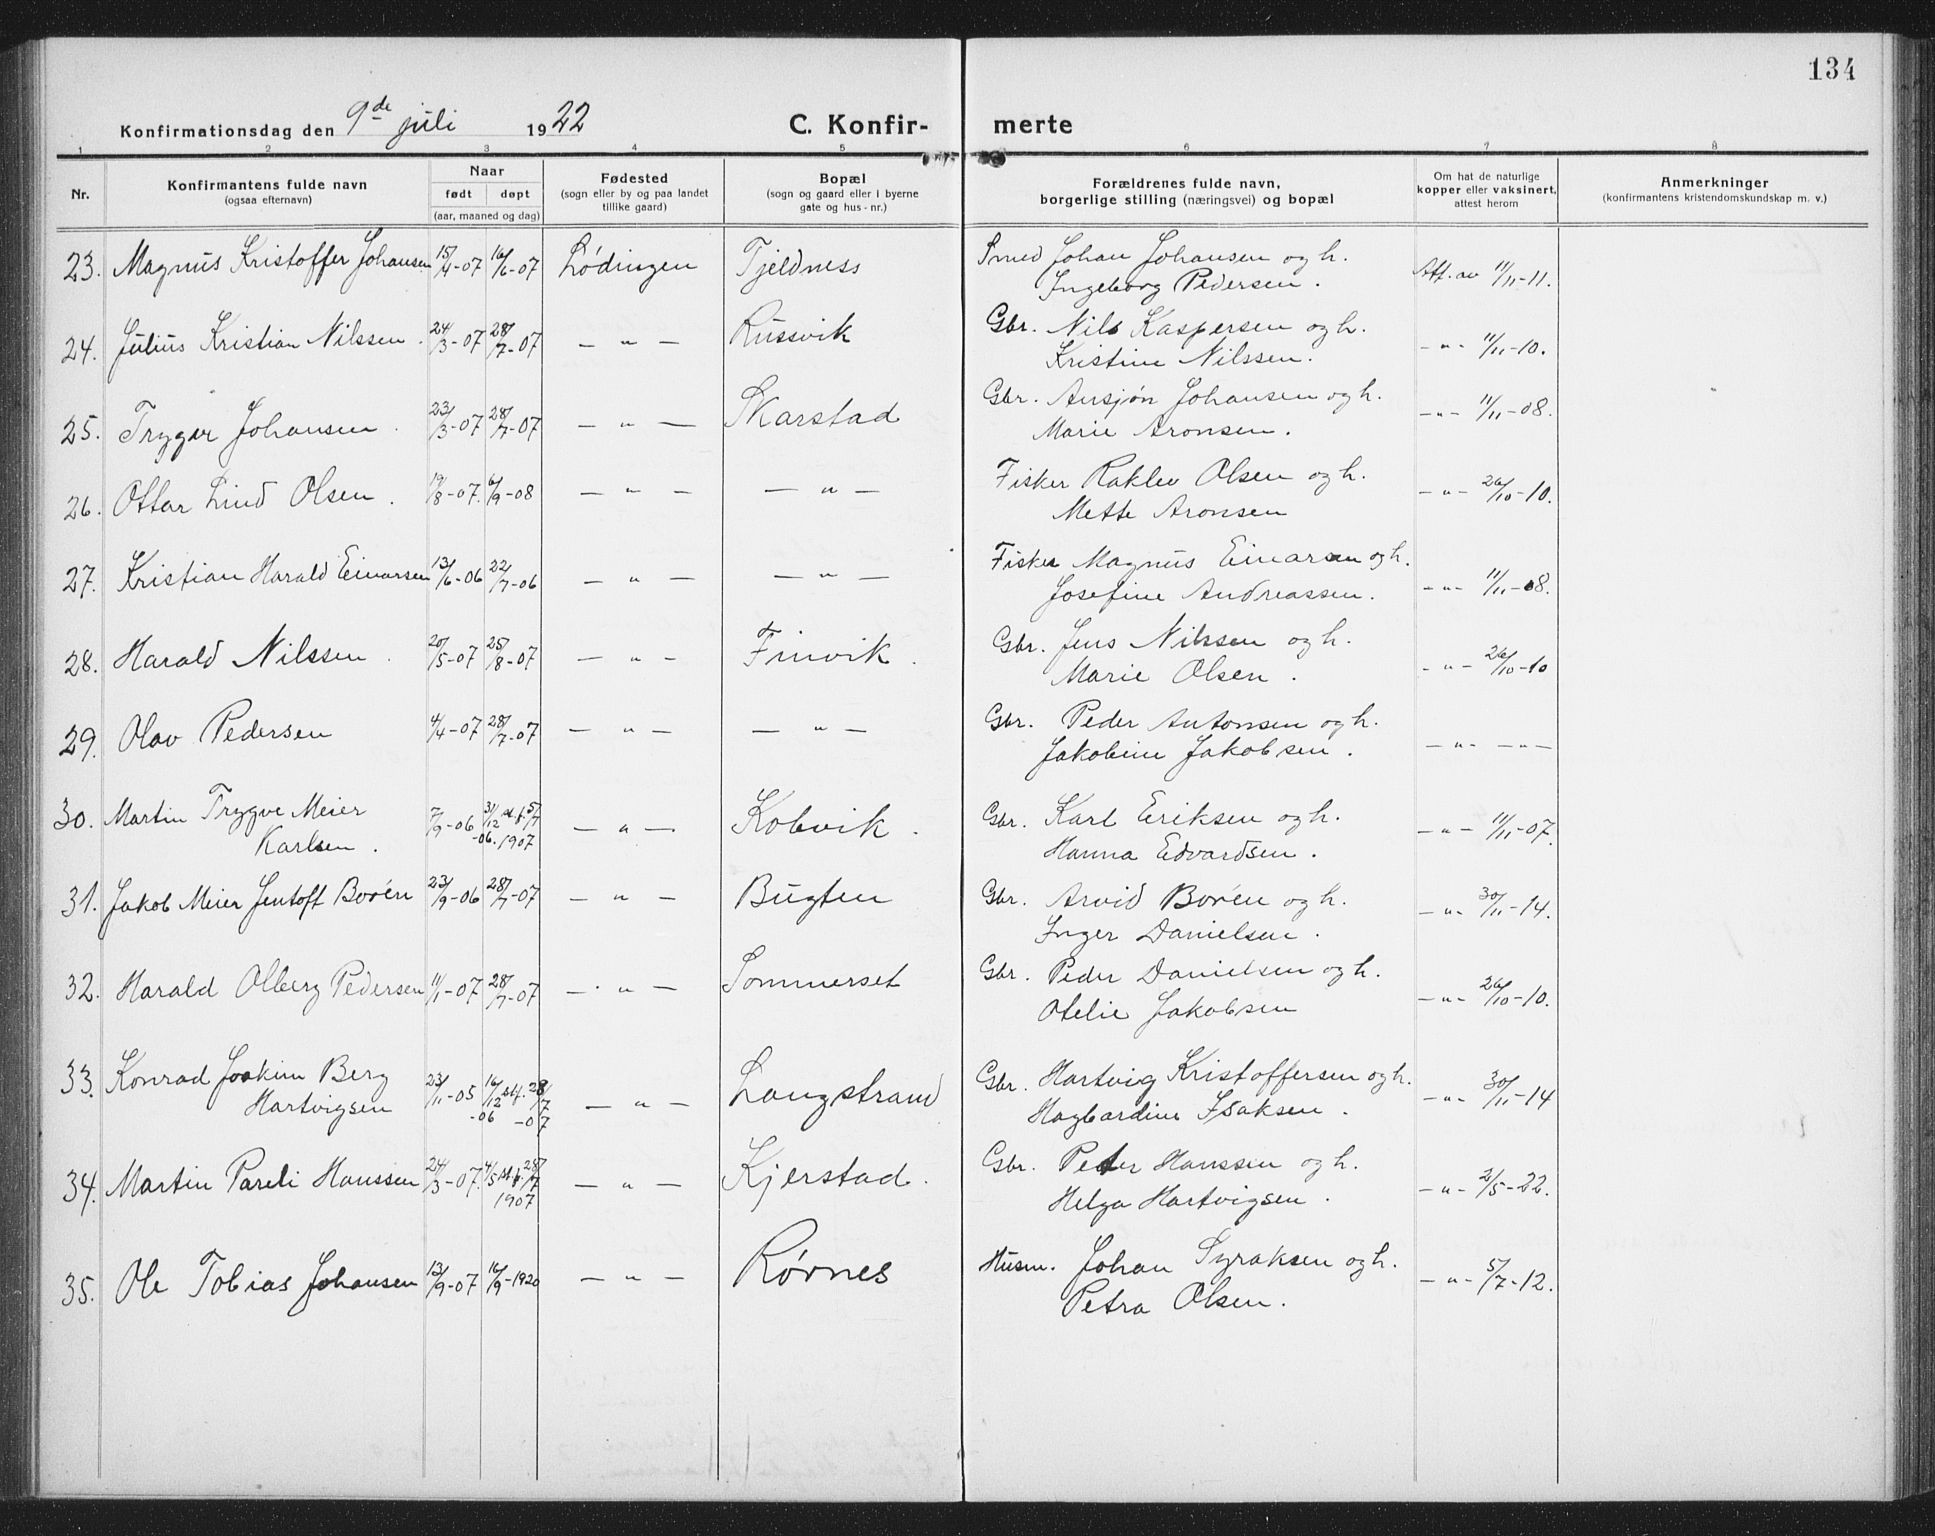 134
Konfirmationsdag den 9de juli 1922 C. Konfir- merte
1 2 3 4 5 6 7 8
Nr. Konfirmantens fulde navn (ogsaa efternavn) Naar født døpt (aar, maaned og dag) Fødested (sogn eller by og paa landet tillike gaard) Bopæl (sogn og gaard eller i byerne gate og hus-nr.) Forældrenes fulde navn, borgerlige stilling (næringsvei) og bopæl Om hat de naturlige kopper eller vaksinert, attest herom Anmerkninger (konfirmantens kristendomskundskap m. v.)
23. Magnus Kristoffer Johansen 15/4-07 16/6-07 Lødingen Tjeldness Smed Johan Johansen og h. Att. av 11/11-11.
Ingeborg Pedersen.
24. Julius Kristian Nilssen. 24/3-07 28/7-07 — " — Russvik Gbr. Nils Kaspersen og h. - " - 11/11-10.
Kristine Nilssen.
25. Trygve Johansen. 23/3-07 28/7-07 — " — Skarstad Gbr. Ansjøn Johansen og h. - " - 11/11-08.
Marie Aronsen.
26. Ottar Lind Olsen. 19/8-07. 6/9-08 — " — — " — Fisker Raklev Olsen og h. - " - 26/10-10.
Mette Aronsen
27. Kristian Harald Einarsen 13/6-06 22/7-06 — " — — " — Fisker Magnus Einarsen og h. - " - 11/11-08.
Josefine Andreassen.
28. Harald Nilssen. 20/5-07 25/8-07 — " — Finvik. Gbr. Jens Nilssen og h. - " - 26/10-10
Marie Olsen.
29. Olav Pedersen 4/4-07 28/7-07 — " — — " — Gbr. Peder Antonsen og h. — " - — " —
Jakobine Jakobsen.
30. Martin Trygve Meier 7/9-06 31/12-06. st.f. 5/7 1907 — " — Kobvik. Gbr. Karl Eriksen og h. - " - 11/11-07.
Karlsen. Hanna Edvardsen.
31. Jakob Meier Jentoft Borén 23/9-06 28/7-07 — " — Bugten Gbr. Arvid Borén og h. - " - 30/11-14.
Inger Danielsen.
32. Harald Olberg Pedersen 11/1-07 28/7-07 — " — Sommerset Gbr. Peder Danielsen og h. - " - 26/10-10.
Otelie Jakobsen
33. Konrad Joakim Berg 23/11-05 16/12-06 stf. 28/7-07 — " — Langstrand Gbr. Hartvig Kristoffersen og h. - " - 30/11-14
Hartvigsen Hagbardine Isaksen.
34. Martin Pareli Hanssen 24/3-07. 4/5 st.f. 28/7 1907 — " — Kjerstad. Gbr. Peter Hanssen og h. - " - 2/5-22.
Helga Hartvigsen.
35. Ole Tobias Johansen 13/9-07 16/9-1920 — " — Rørnes Husm. Johan Syraksen og h. - " - 5/7-12.
Petra Olsen.